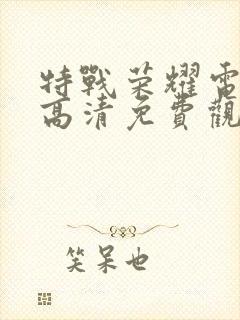 特戰荣耀電
高清免費觀
笑呆也